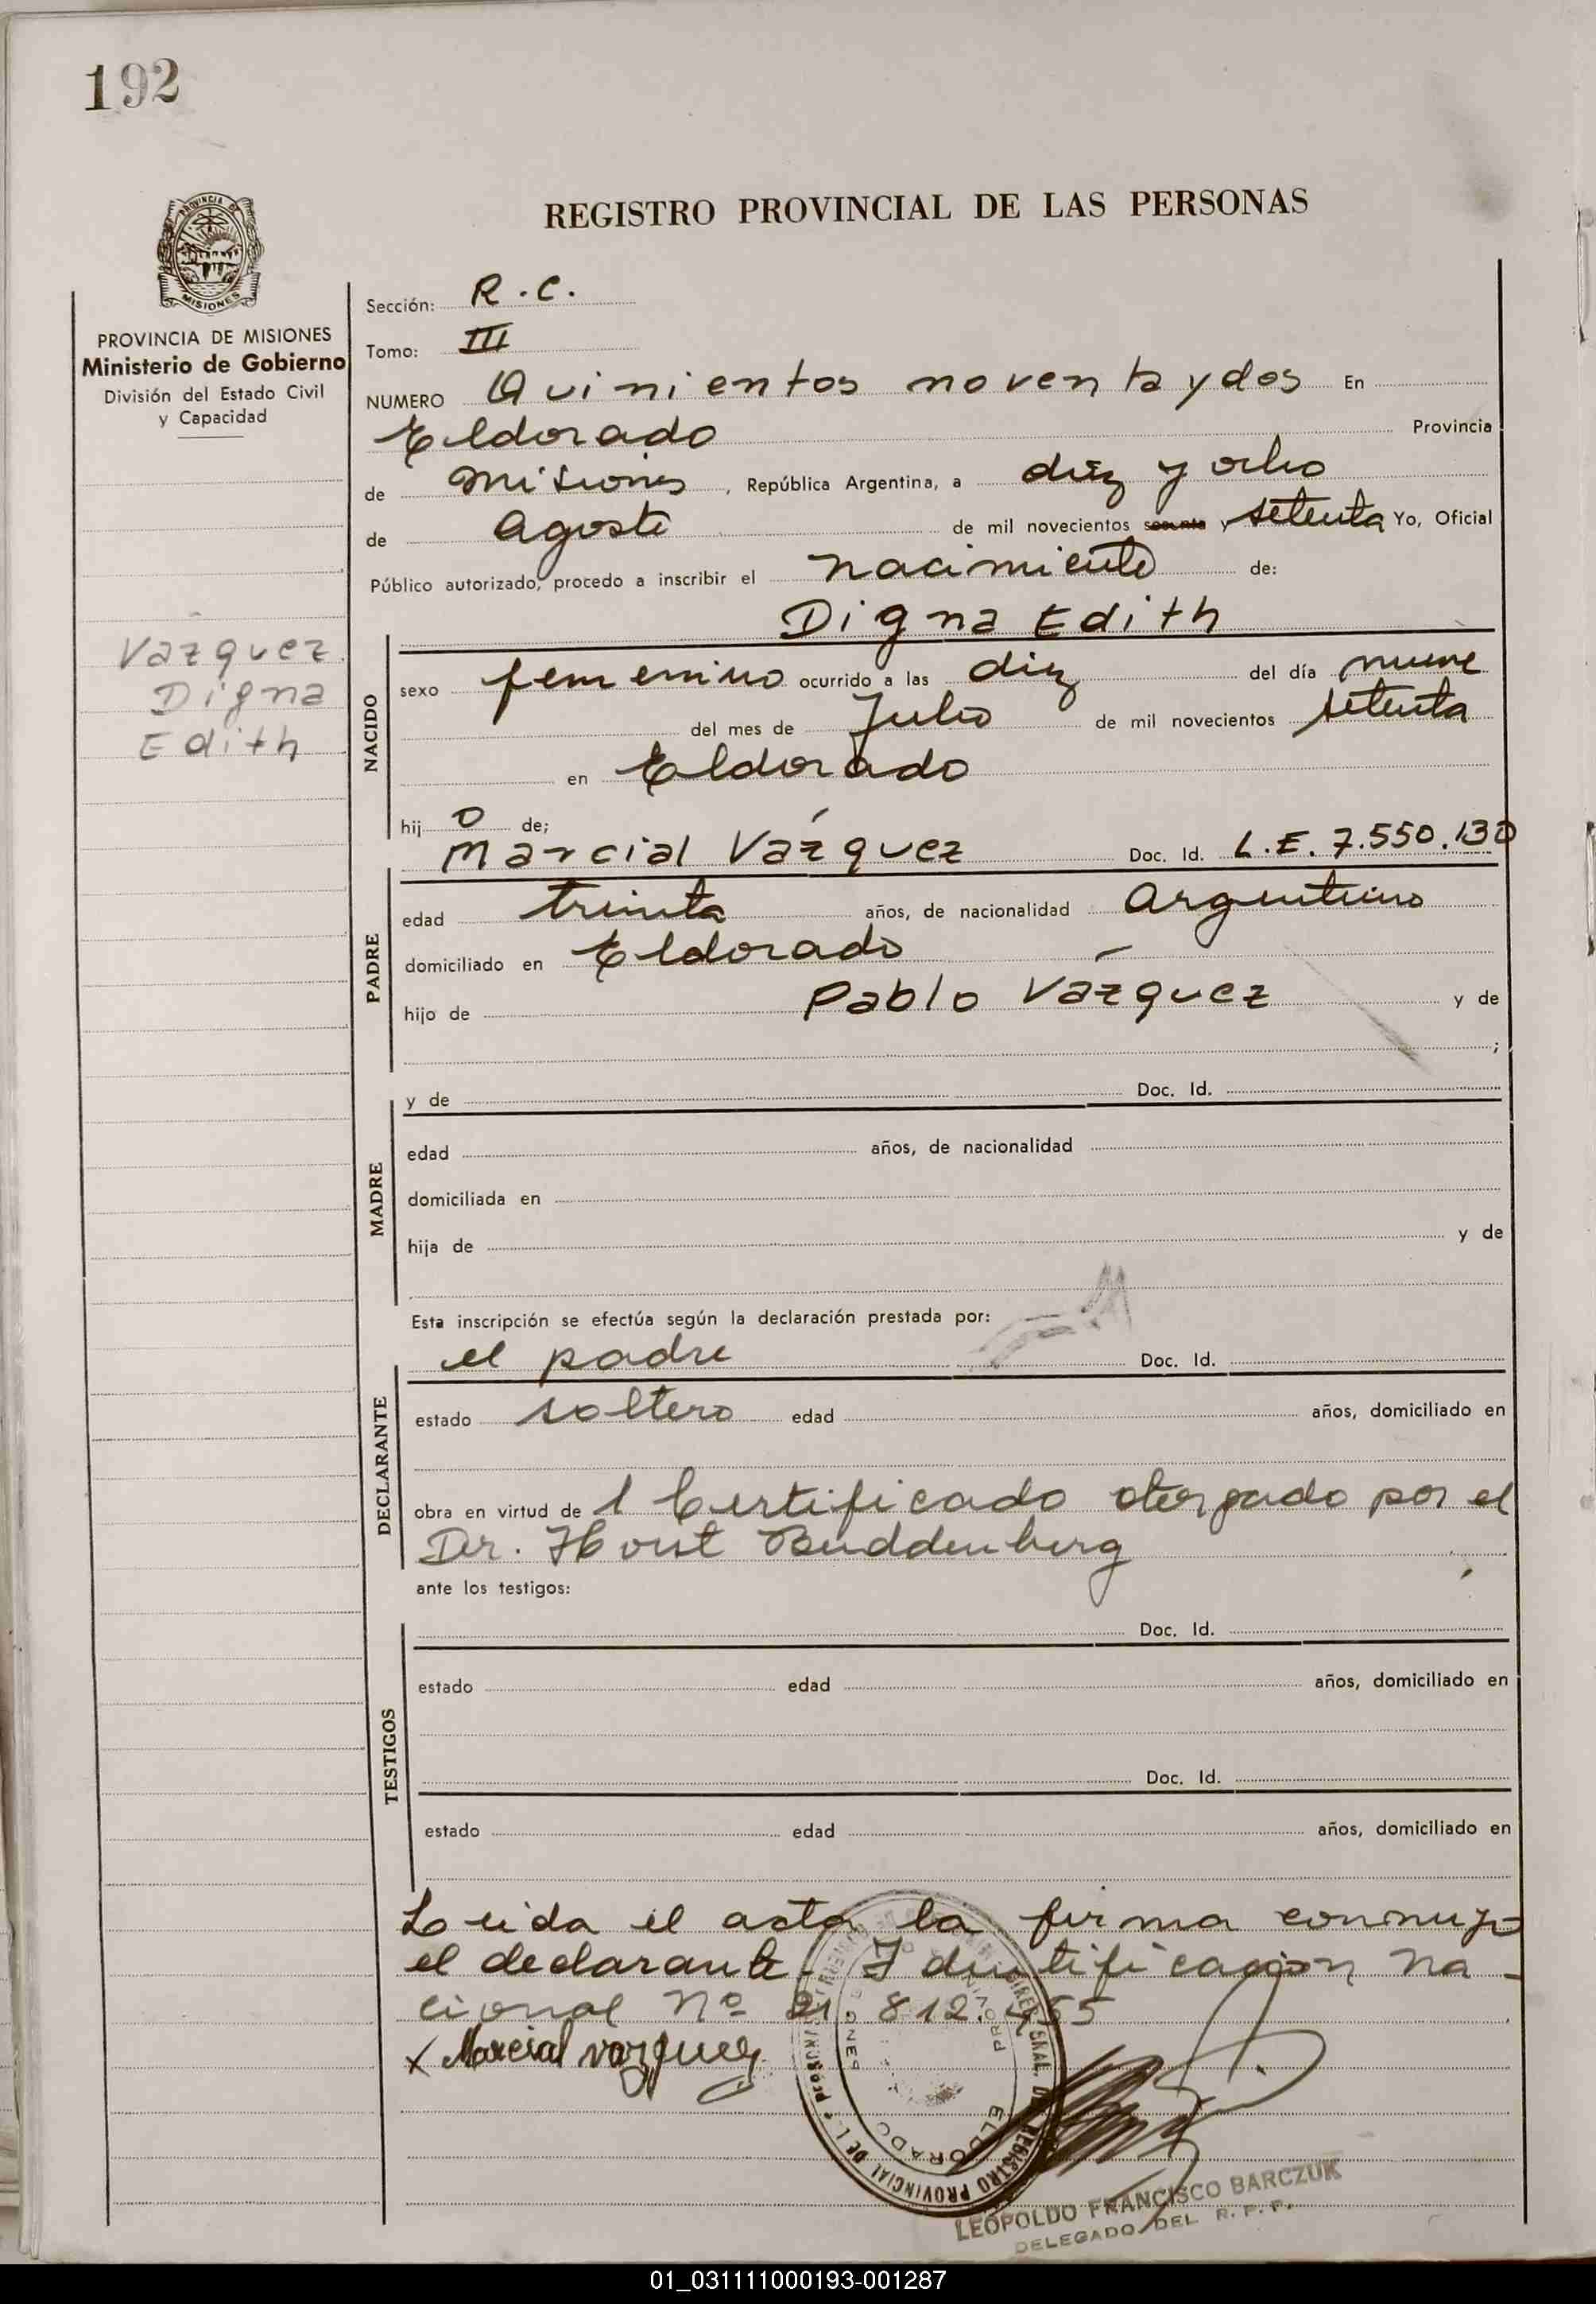 192
REGISTRO PROVINCIAL DE LAS PERSONAS
PROVINCIA DE MISIONES
Ministerio de Gobierno
División del Estado Civil
y Capacidad
Vazquez
Digna
Edith
Sección: R.C.
Tomo: III
NUMERO Quinientos noventa y dos En
Eldorado Provincia
de Misiones, República Argentina, a diez y ocho
de Agosto de mil novecientos sesenta y setenta Yo, Oficial
Público autorizado, procedo a inscribir el nacimiento de:
Digna Edith
NACIDO
sexo femenino ocurrido a las diez del día nueve
del mes de Julio de mil novecientos setenta
en Eldorado
hijo de;
Marcial Vázquez Doc. Id. L.E. 7.550.130
PADRE
edad treinta años, de nacionalidad Argentino
domiciliado en Eldorado
hijo de Pablo Vázquez y de
;
y de Doc. Id.
MADRE
edad años, de nacionalidad
domiciliada en
hija de y de
Esta inscripción se efectúa según la declaración prestada por:
el padre Doc. Id.
DECLARANTE
estado soltero edad años, domiciliado en
obra en virtud de 1 Certificado otorgado por el
Dr. Horst Buddenberg
ante los testigos:
Doc. Id.
TESTIGOS
estado edad años, domiciliado en
Doc. Id.
estado edad años, domiciliado en
Leida el acta la firma conmigo
el declarante. Identificación Na-
cional nº 21.812.455
x Marcial vazquez
REGISTRO PROVINCIAL DE L
ELDORADO
LEOPOLDO FRANCISCO BARCZUK
DELEGADO DEL R. P. P.
01_031111000193-001287